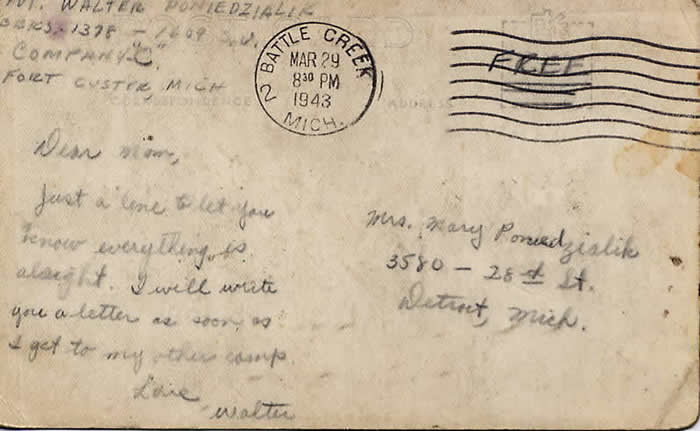 PVT. WALTER PONIEDZIALIK
BRKS. 1378 - 1609 S.U.
COMPANY "C"
FORT CUSTER MICH
BATTLE CREEK
2
MAR 29
8 30 PM
1943
MICH.
FREE
CORRESPONDENCE
ADDRESS
Dear Mom,
Just a line to let you
know everything is
alright. I will write
you a letter as soon as
I get to my other camp.
Love
Walter
Mrs. Mary Poniedzialik
3580 - 28th St.
Detroit, Mich.